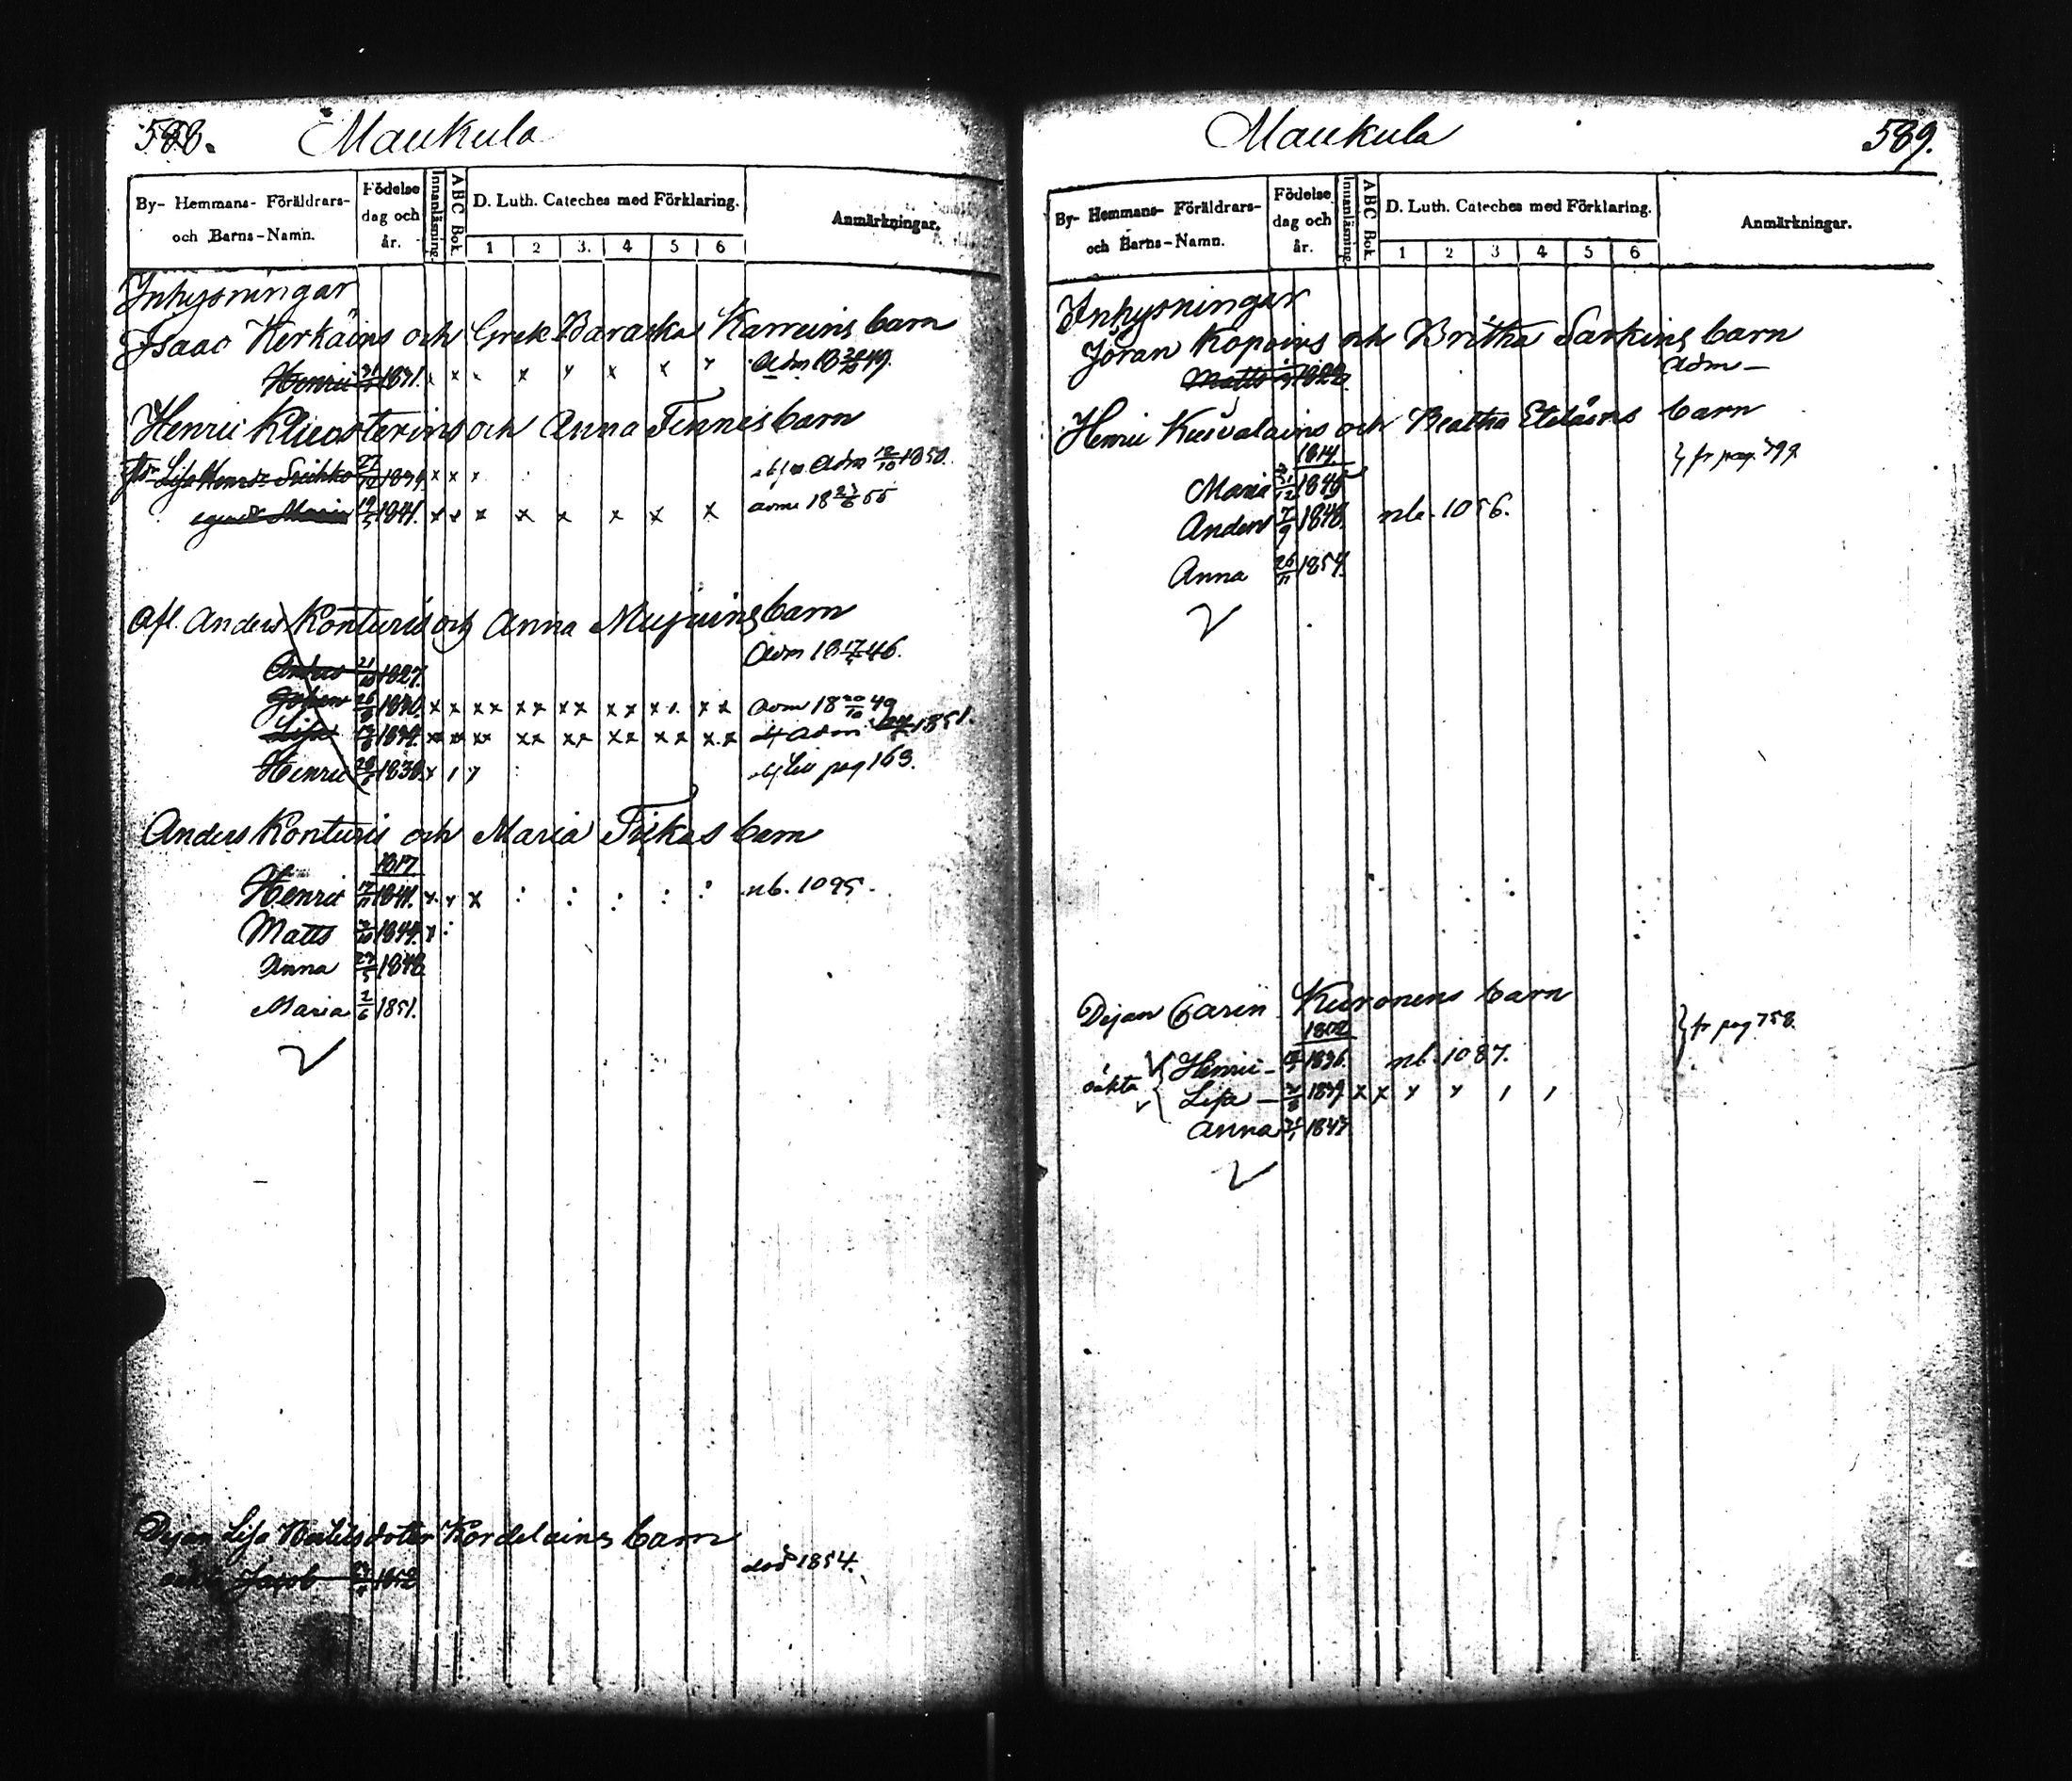 588. Maukula
By- Hemmans- Föräldrars- och Barns-Namn.
Födelse dag och år.
Innanläsning.
ABC Bok.
D. Luth. Cateches med Förklaring.
1 2 3. 4 5 6
Anmärkningar.
Inhysningar
Isaac Kerkäins och Gret Baraska Karreins barn
Henric 1831. x x x x x x Adm 18 49.
Henric Klicosterins och Anna Tennes barn
Lisa Henrsdr 1839. x x x Adm 12/10 1850.
Maria 1841. x x x x x x x x adm 18 55
Afl. Anders Konturis och Anna Mujuins barn
Anders 21/10 1827. Adm 18 46.
Johan 1830. x x xx xx xx xx x xx adm 18 20/10 49
Lisa xx xx xx xx xx xx Adm 1851.
Henric 1838. x pag 163.
Anders Konturis och Maria Tiikas barn
1817
Henric 1841. x x x : : : : : nb. 1095.
Matts 1844. x :
Anna 1848
Maria 2/6 1851.
Dejan Lisa dotter Kordelains barn
Jacob 1852 död 1854.
Maukula 589.
By- Hemmans- Föräldrars- och Barns-Namn.
Födelse dag och år.
Innanläsning.
ABC Bok.
D. Luth. Cateches med Förklaring.
1 2 3 4 5 6
Anmärkningar.
Inhysningar
Jöran Kopoins och Britha Sarkins barn
Matts 1828. Adm —
Henric Kuivalains och Beatha Eteläins barn
1814. } fr pag. 799
Maria 31/12 1845
Anders 7/9 1848. nb. 1056.
Anna 26/11 1854.
Dejan Carin Kuronens barn
1802 } fr pag 758.
oäkta { Henric – 1836. nb. 1087.
Lisa – 1839 x x
Anna 1843